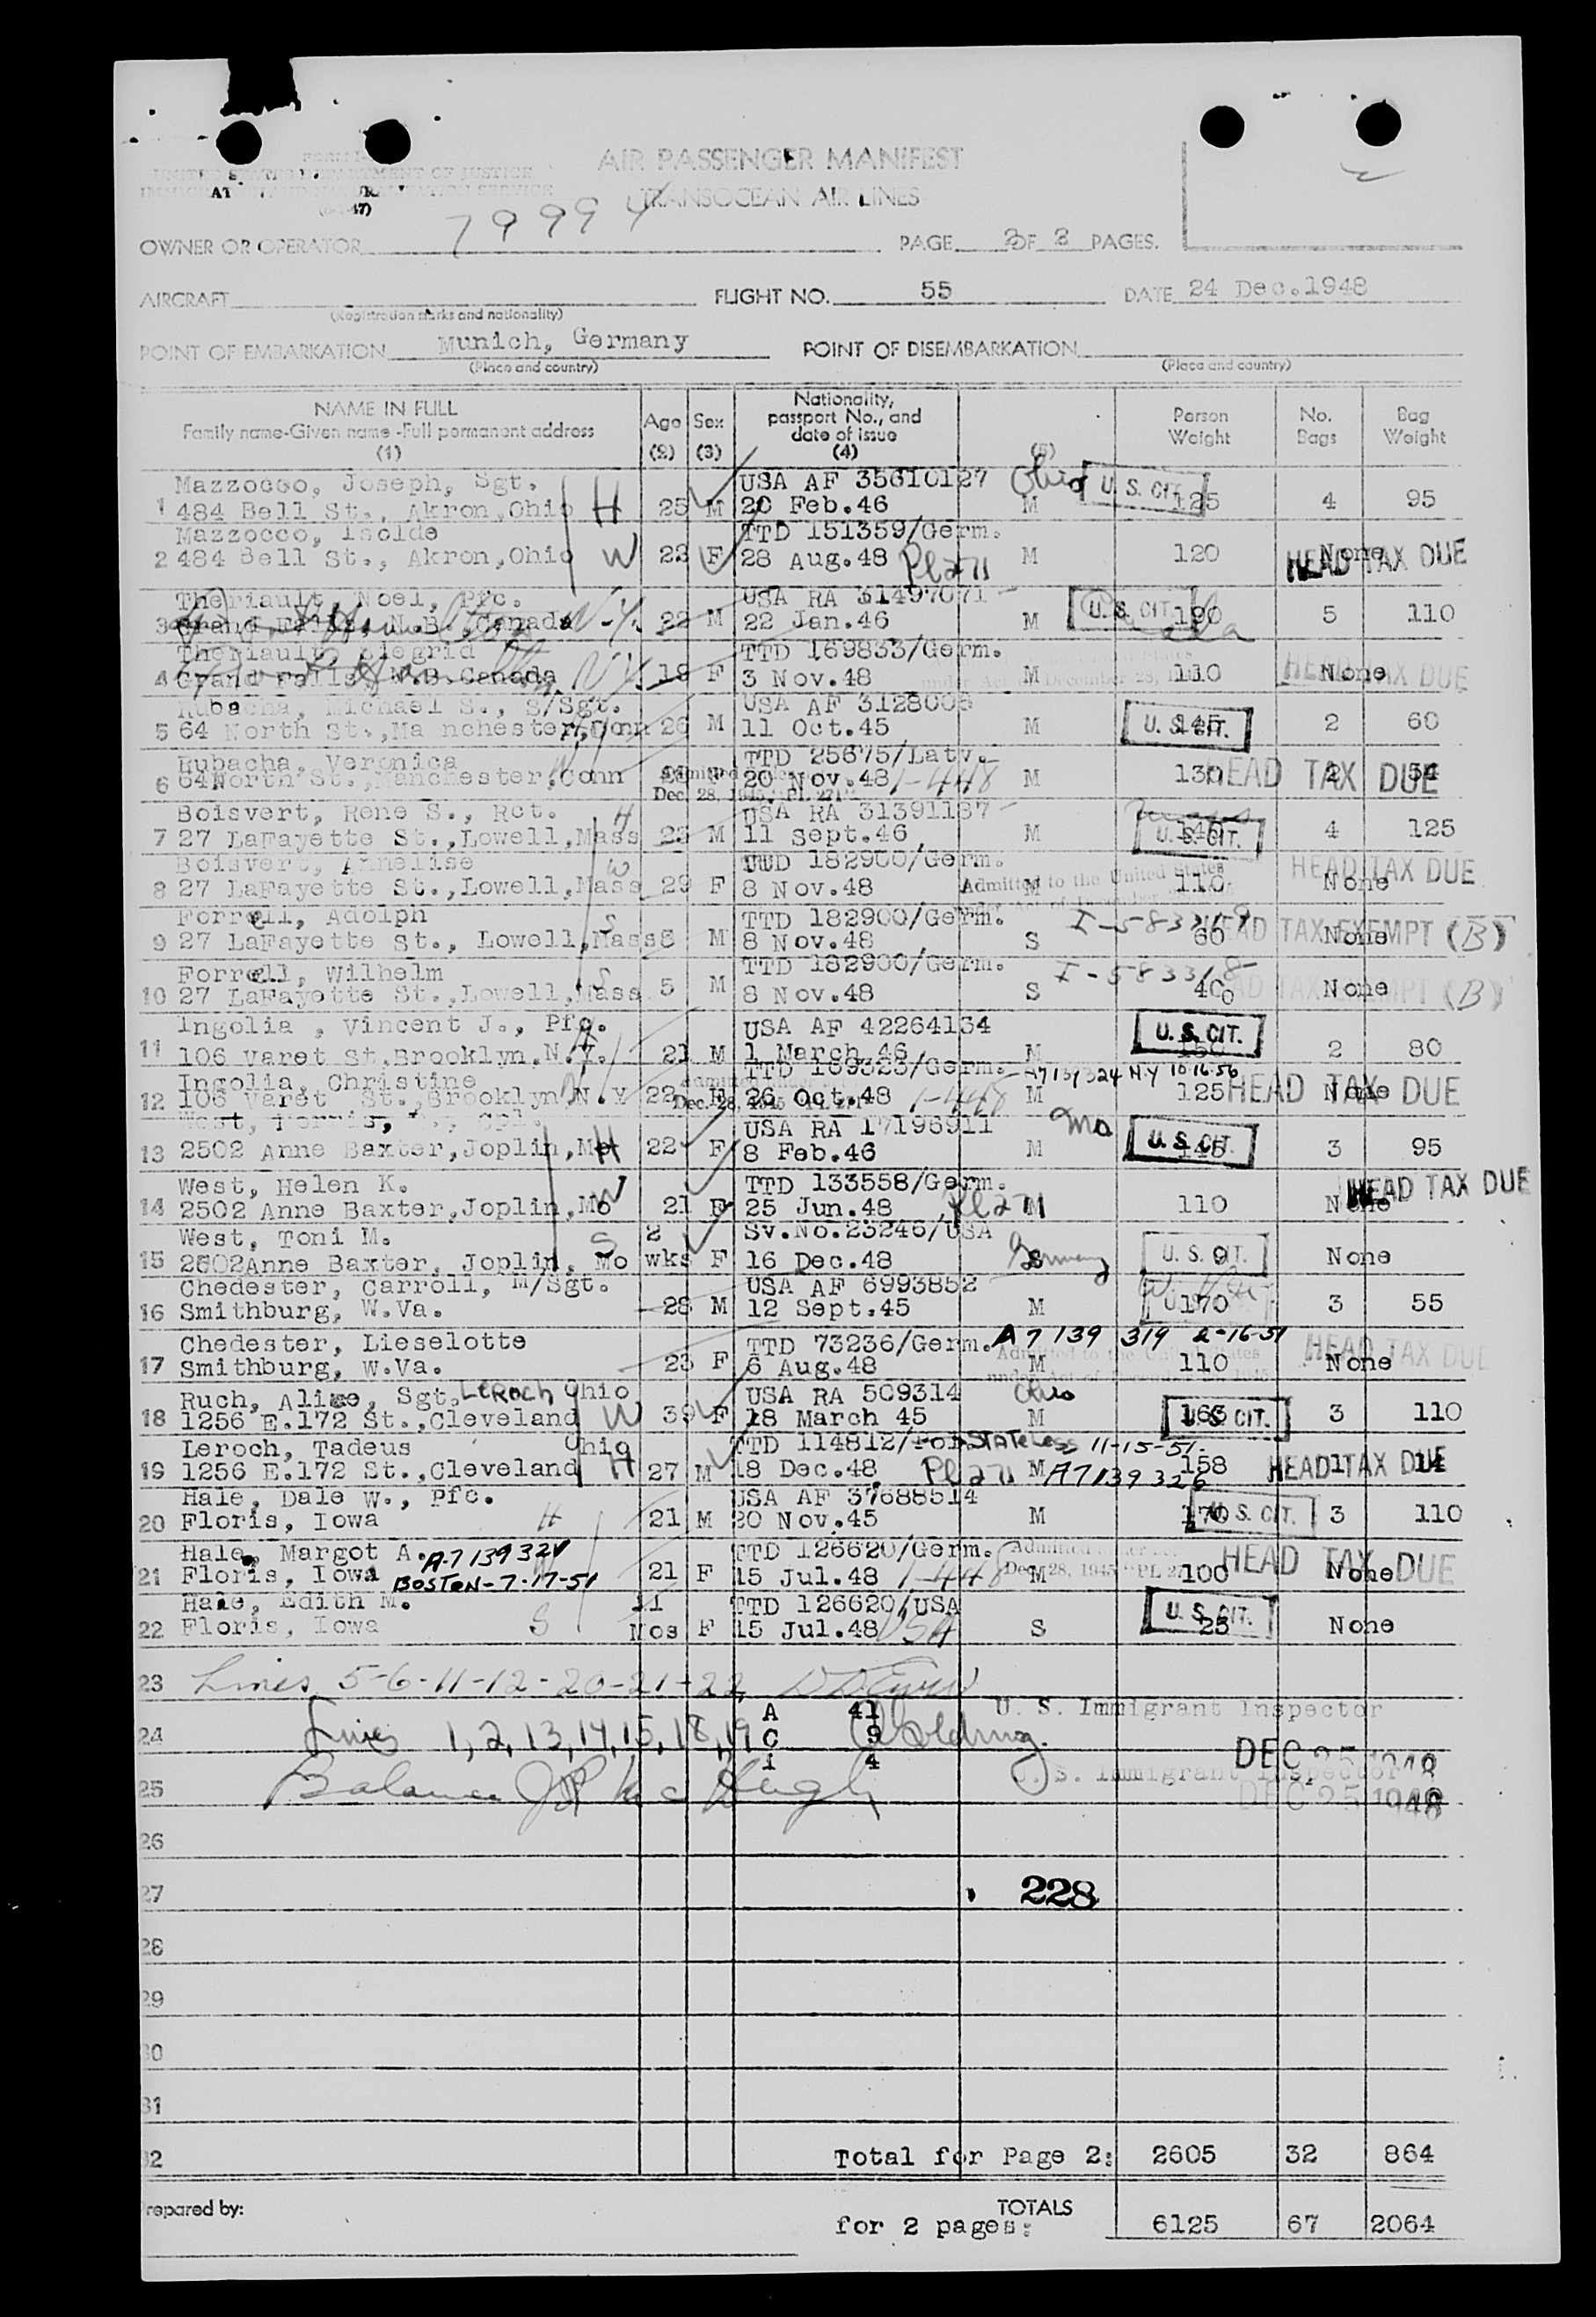 AIR PASSENGER MANIFEST
UNITED STATES DEPARTMENT OF JUSTICE
TRANSOCEAN AIR LINES
79994
OWNER OR OPERATOR PAGE 2 OF 2 PAGES.
AIRCRAFT FLIGHT NO. 55 DATE 24 Dec.1948
(Registration marks and nationality)
POINT OF EMBARKATION Munich, Germany POINT OF DISEMBARKATION
(Place and country) (Place and country)
NAME IN FULL Age Sex Nationality, Person No. Bag
Family name-Given name -Full permanent address passport No., and Weight Bags Weight
date of issue
(1) (2) (3) (4) (5)
Mazzocco, Joseph, Sgt. USA AF 35610127 Ohio U. S. CIT.
1 484 Bell St., Akron,Ohio H 25 M 20 Feb.46 M 125 4 95
Mazzocco, Isolde TTD 151359/Germ.
2 484 Bell St., Akron,Ohio W 23 F 28 Aug.48 PL271 M 120 None HEAD TAX DUE
Theriault, Noel, Pfc. USA RA 31497071
3 Grand Falls, N.B. Canada N.Y. 22 M 22 Jan.46 M U.S. CIT. 190 5 110
Theriault, Siegrid TTD 169833/Germ.
4 Grand Falls, N.B. Canada N.Y. 18 F 3 Nov.48 M 110 None HEAD TAX DUE
Rubacha, Michael S., S/Sgt. USA AF 3128006
5 64 North St.,Ma nchester,Conn 26 M 11 Oct.45 M 145 U. S. CIT. 2 60
Rubacha, Veronica TTD 25675/Latv.
6 64North St.,Manchester,Conn F 20 Nov.48 1-448 M 130 2 54 HEAD TAX DUE
Dec. 28, 1945 PL 271
Boisvert, Rene S., Rct. H USA RA 31391187
7 27 LaFayette St.,Lowell,Mass 23 M 11 Sept.46 M 140 U. S. CIT. 4 125
Boisvert, Annelise W TTD 182900/Germ.
8 27 LaFayette St.,Lowell,Mass 29 F 8 Nov.48 M 110 None HEAD TAX DUE
Admitted to the United States
Forrell, Adolph S TTD 182900/Germ. I-583319
9 27 LaFayette St., Lowell,Mass 8 M 8 Nov.48 S 60 None HEAD TAX EXEMPT (B)
Forrell, Wilhelm S TTD 182900/Germ. I-583318
10 27 LaFayette St.,Lowell,Mass 5 M 8 Nov.48 S 40 None HEAD TAX EXEMPT (B)
Ingolia , Vincent J., Pfc. H USA AF 42264134 U. S. CIT.
11 106 Varet St.Brooklyn.N.Y. 21 M 1 March 46 M 150 2 80
Ingolia, Christine TTD 169323/Germ. A7139324 N.Y 10-16-56
12 106 Varet St.,Brooklyn N.Y 22 F 26 Oct.48 1-448 M 125 None HEAD TAX DUE
Dec. 28, 1945
West, Cpl. USA RA 17196911 Mo U. S. CIT.
13 2502 Anne Baxter,Joplin,Mo H 22 F 8 Feb.46 M 145 3 95
West, Helen K. W TTD 133558/Germ.
14 2502 Anne Baxter,Joplin,Mo 21 F 25 Jun.48 PL271 M 110 None HEAD TAX DUE
West, Toni M. S 2 Sv.No.23246/USA
15 2502Anne Baxter, Joplin, Mo wks F 16 Dec.48 Germany S U. S. CIT. 9 None
Chedester, Carroll, M/Sgt. USA AF 6993852 W. Va
16 Smithburg, W.Va. 28 M 12 Sept.45 M 170 3 55
Chedester, Lieselotte TTD 73236/Germ. A7 139 319 2-16-51
17 Smithburg, W.Va. 23 F 6 Aug.48 M 110 None HEAD TAX DUE
Ruch, Alice, Sgt. LEROCH Ohio USA RA 509314 Ohio
18 1256 E.172 St.,Cleveland W 39 F 18 March 45 M 163 U. S. CIT. 3 110
Leroch, Tadeus Ohio TTD 114812/Pol. STATELESS 11-15-51
19 1256 E.172 St.,Cleveland H 27 M 18 Dec.48 PL271 M A7139326 158 1 14 HEAD TAX DUE
Hale, Dale W., Pfc. USA AF 37688514
20 Floris, Iowa H 21 M 20 Nov.45 M 170 U. S. CIT. 3 110
Hale, Margot A. A-7139321 TTD 126620/Germ.
21 Floris, Iowa BOSTON-7-17-51 21 F 15 Jul.48 1-448 M 100 None HEAD TAX DUE
Dec. 28, 1945 PL 271
Hale, Edith M. 11 TTD 126620/USA
22 Floris, Iowa S Mos F 15 Jul.48 USA S 25 U. S. CIT. None
23 Lines 5-6-11-12-20-21-22
A 41 U. S. Immigrant Inspector
24 Lines 1,2,13,14,15,18,19 C 9
i 4 DEC 25 1948
25 Balance U. S. Immigrant Inspector
DEC 25 1948
26
27 228
28
29
30
31
32 Total for Page 2: 2605 32 864
Prepared by: TOTALS
for 2 pages: 6125 67 2064